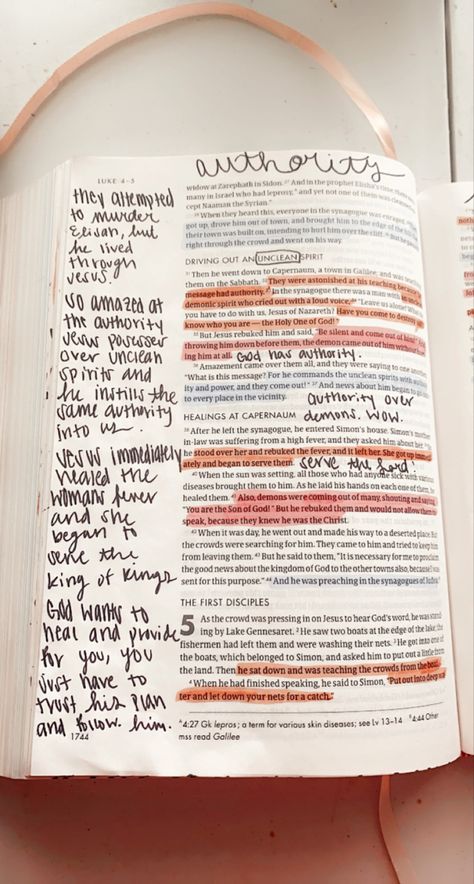 LUKE 4–5
authority
they attempted
to murder
Elisah, but
he lived
through
Jesus.
so amazed at
the authority
Jesus possesser
over unclean
spirits and
he instills the
same authority
into us
Jesus immediately
healed the
womans fever
and she
began to
serve the
king of kings
God wants to
heal and provide
for you, you
just have to
trust his plan
and follow him.
1744
widow at Zarephath in Sidon. 27 And in the prophet Elisha's time,
many in Israel who had leprosy, and yet not one of them was
cept Naaman the Syrian."
28 When they heard this, everyone in the synagogue was enraged.
got up, drove him out of town, and brought him to the edge of the
their town was built on, intending to hurl him over the cliff. But he passed
right through the crowd and went on his way.
DRIVING OUT AN UNCLEAN SPIRIT
31 Then he went down to Capernaum, a town in Galilee, and was teaching
them on the Sabbath. 32 They were astonished at his teaching because
message had authority. 33 In the synagogue there was a man with an unclean
demonic spirit who cried out with a loud voice, 34 "Leave us alone!
you have to do with us, Jesus of Nazareth? Have you come to destroy us?
know who you are — the Holy One of God!"
35 But Jesus rebuked him and said, "Be silent and come out of him!"
throwing him down before them, the demon came out of him without
ing him at all. God has authority.
36 Amazement came over them all, and they were saying to one another,
"What is this message? For he commands the unclean spirits with
ity and power, and they come out!" 37 And news about him began to go
to every place in the vicinity. authority over
demons. wow.
HEALINGS AT CAPERNAUM
38 After he left the synagogue, he entered Simon's house. Simon's mother-
in-law was suffering from a high fever, and they asked him about her.
he stood over her and rebuked the fever, and it left her. She got up immedi-
ately and began to serve them. serve the Lord!
40 When the sun was setting, all those who had anyone sick with various
diseases brought them to him. As he laid his hands on each one of them, he
healed them. 41 Also, demons were coming out of many, shouting and saying,
"You are the Son of God!" But he rebuked them and would not allow them to
speak, because they knew he was the Christ.
42 When it was day, he went out and made his way to a deserted place. But
the crowds were searching for him. They came to him and tried to keep him
from leaving them. 43 But he said to them, "It is necessary for me to proclaim
the good news about the kingdom of God to the other towns also, because I was
sent for this purpose." 44 And he was preaching in the synagogues of Judea.
THE FIRST DISCIPLES
5 As the crowd was pressing in on Jesus to hear God's word, he was stand
ing by Lake Gennesaret. 2 He saw two boats at the edge of the lake; the
fishermen had left them and were washing their nets. 3 He got into one of
the boats, which belonged to Simon, and asked him to put out a little from
the land. Then he sat down and was teaching the crowds from the boat.
4 When he had finished speaking, he said to Simon, "Put out into deep wa-
ter and let down your nets for a catch."
A 4:27 Gk lepros; a term for various skin diseases; see Lv 13–14 B 4:44 Other
mss read Galilee